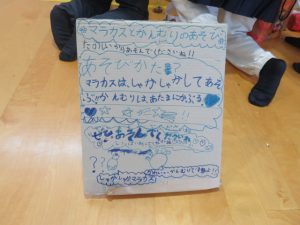 マラカスとかんむりのあそび
たのしいからあそんでくださいね!!
あそびかた
マラカスは、しゃかしゃかしてあそ
ぶ かんむりは、あたまにかぶる
ぜひあそんでくださいね
??
しゃかしゃかマラカス